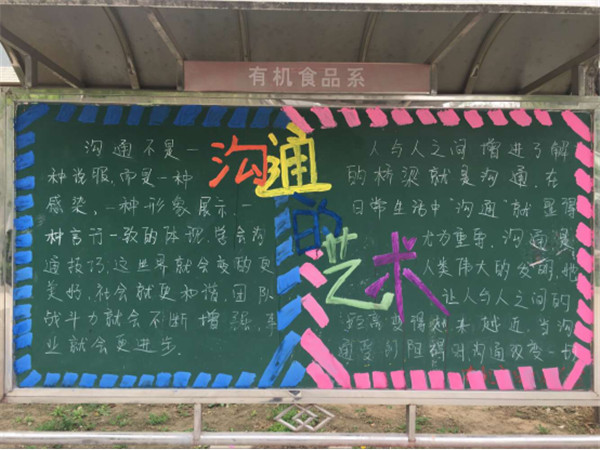 有机食品系
沟通的艺术
沟通不是一
种说服,而是一种
感染、一种形象展示、一
种言行一致的体现。学会沟
通技巧,这世界就会变的更
美好,社会就更和谐,团队
战斗力就会不断增强,事
业就会更进步。
人与人之间增进了解
的桥梁就是沟通。在
日常生活中"沟通"就显得
尤为重要。沟通是
人类伟大的发明,她
让人与人之间的
距离变得越来越近。当沟
通受到阻碍时沟通改变一切